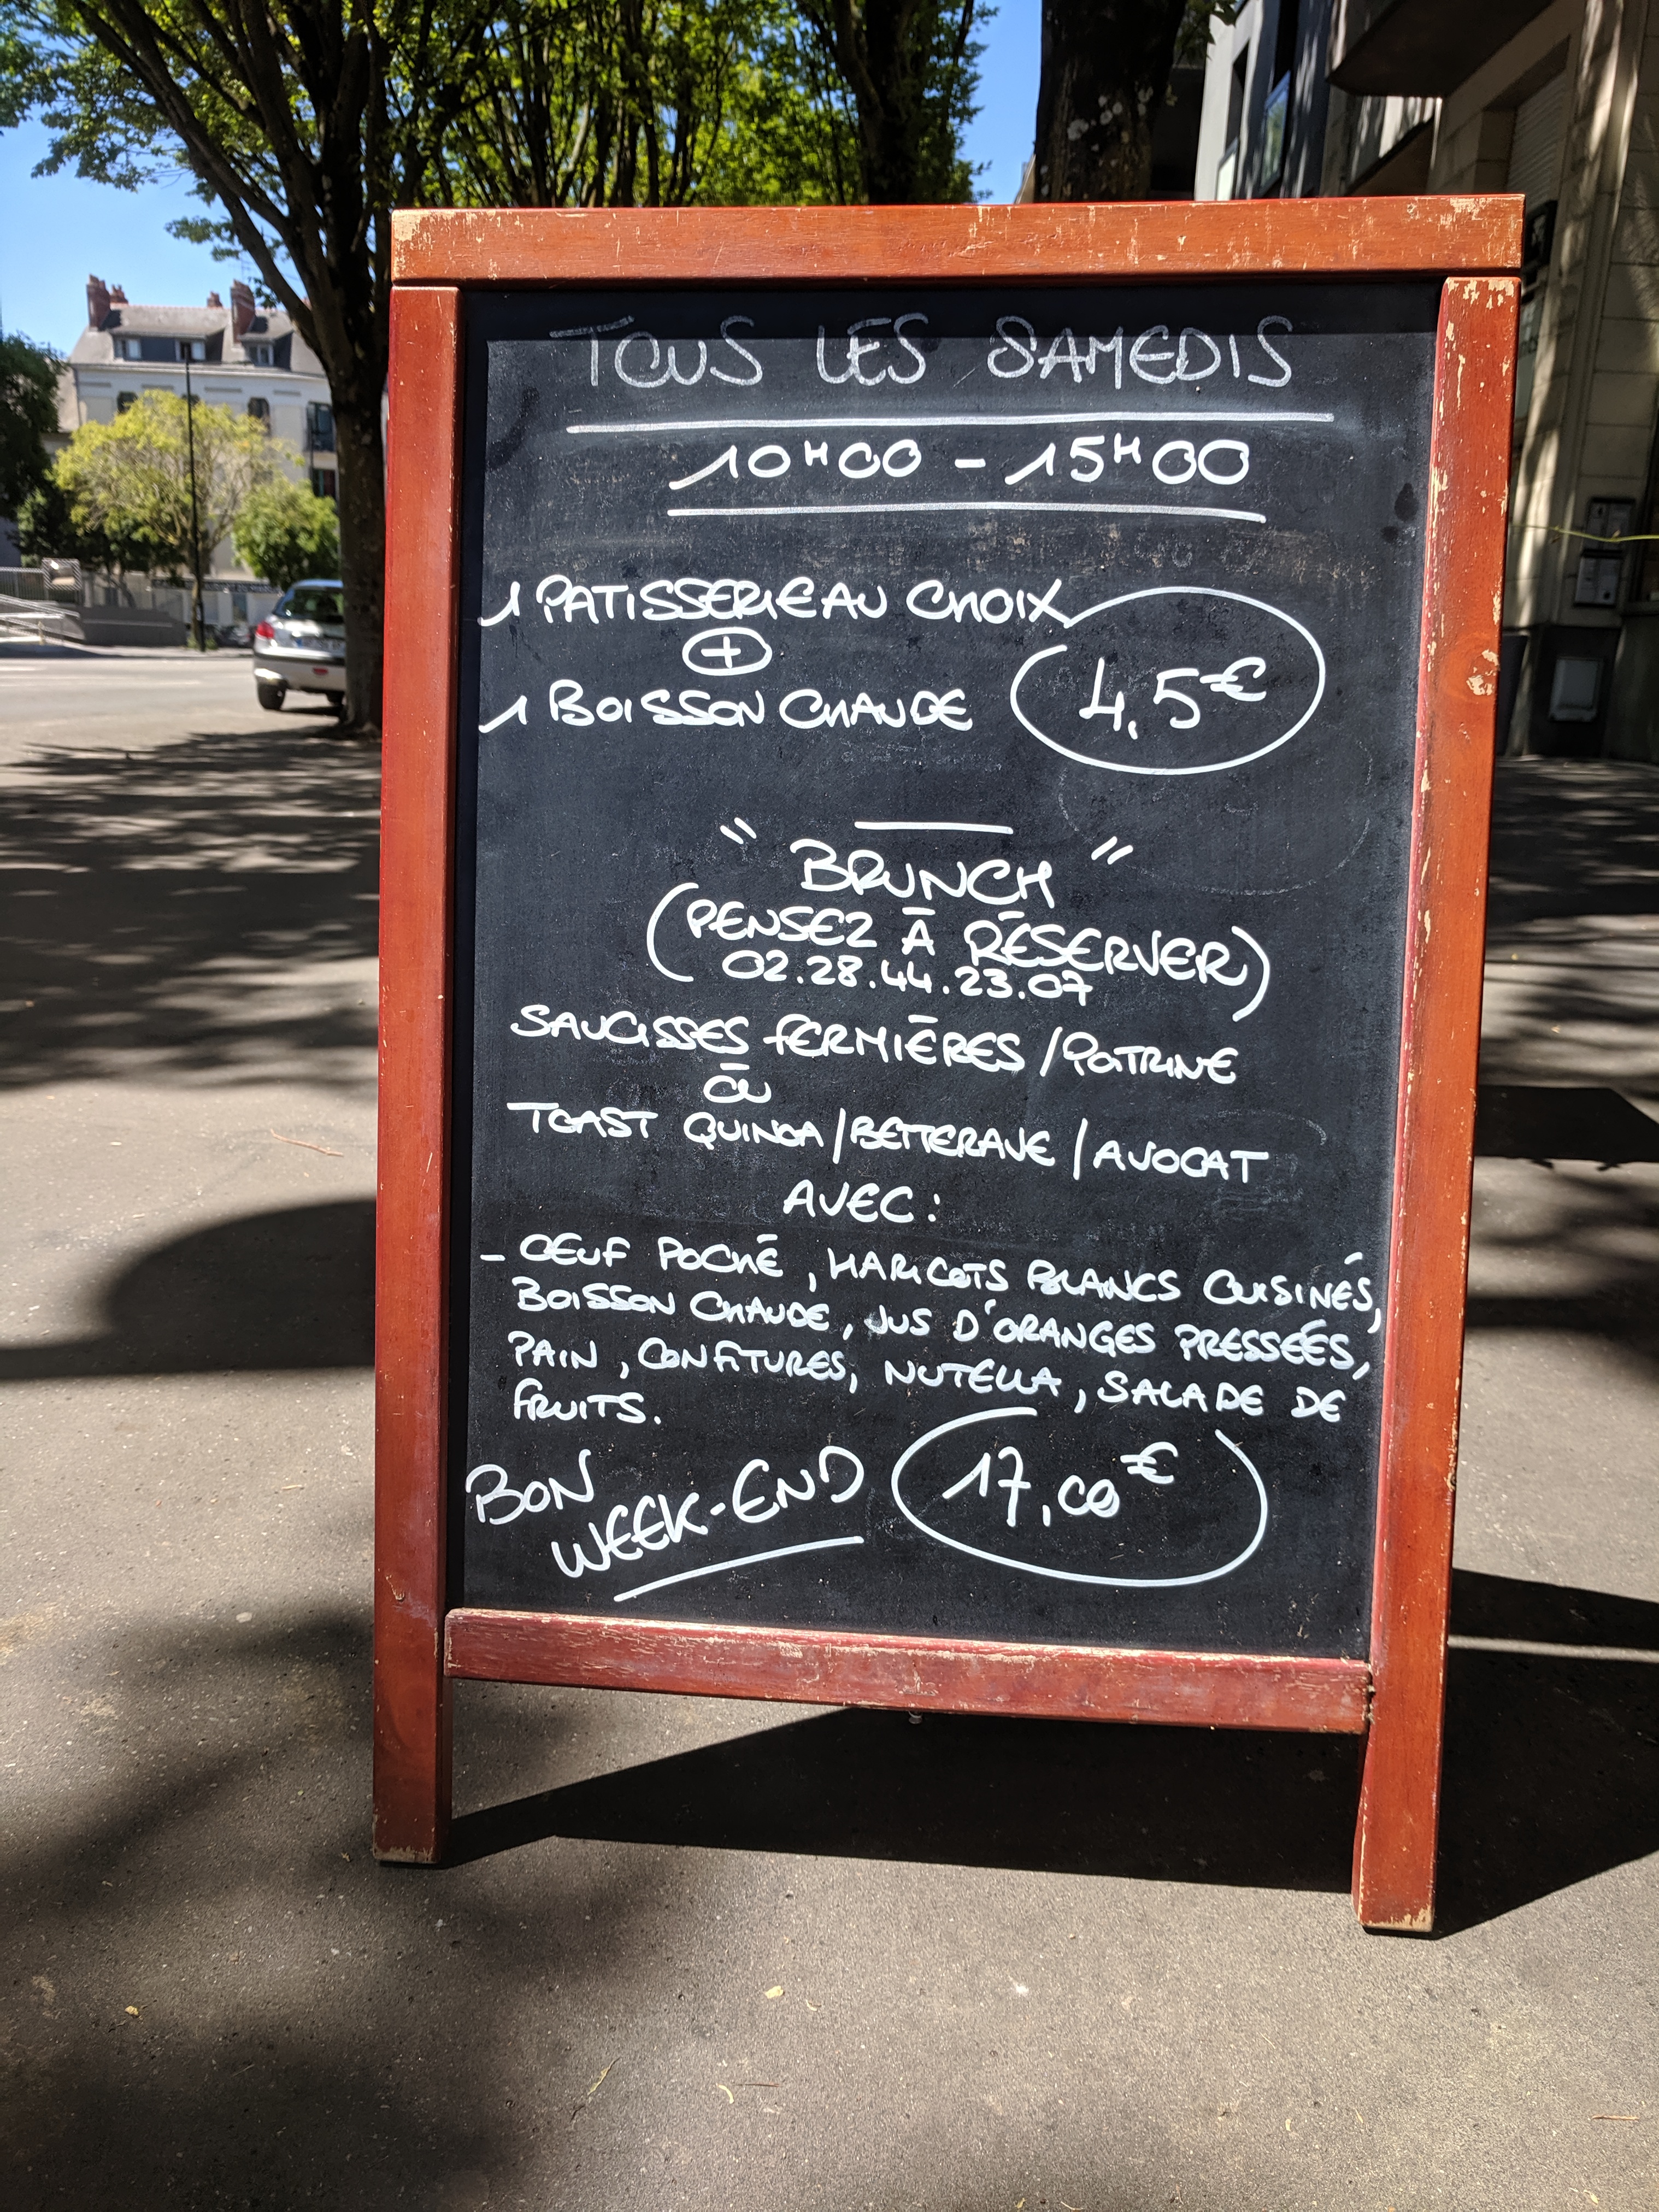 TOUS LES SAMEDIS
10H00 - 15H00
1 PATISSERIE AU CHOIX
+
1 BOISSON CHAUDE
4,5€
" BRUNCH "
(PENSEZ À RÉSERVER)
02.28.44.23.07
SAUCISSES FERMIÈRES / POITRINE
OU
TOAST QUINOA / BETTERAVE / AVOCAT
AVEC :
- OEUF POCHÉ, HARICOTS BLANCS CUISINÉS,
BOISSON CHAUDE, JUS D'ORANGES PRESSÉES,
PAIN, CONFITURES, NUTELLA, SALADE DE
FRUITS.
BON
WEEK-END
17,00€